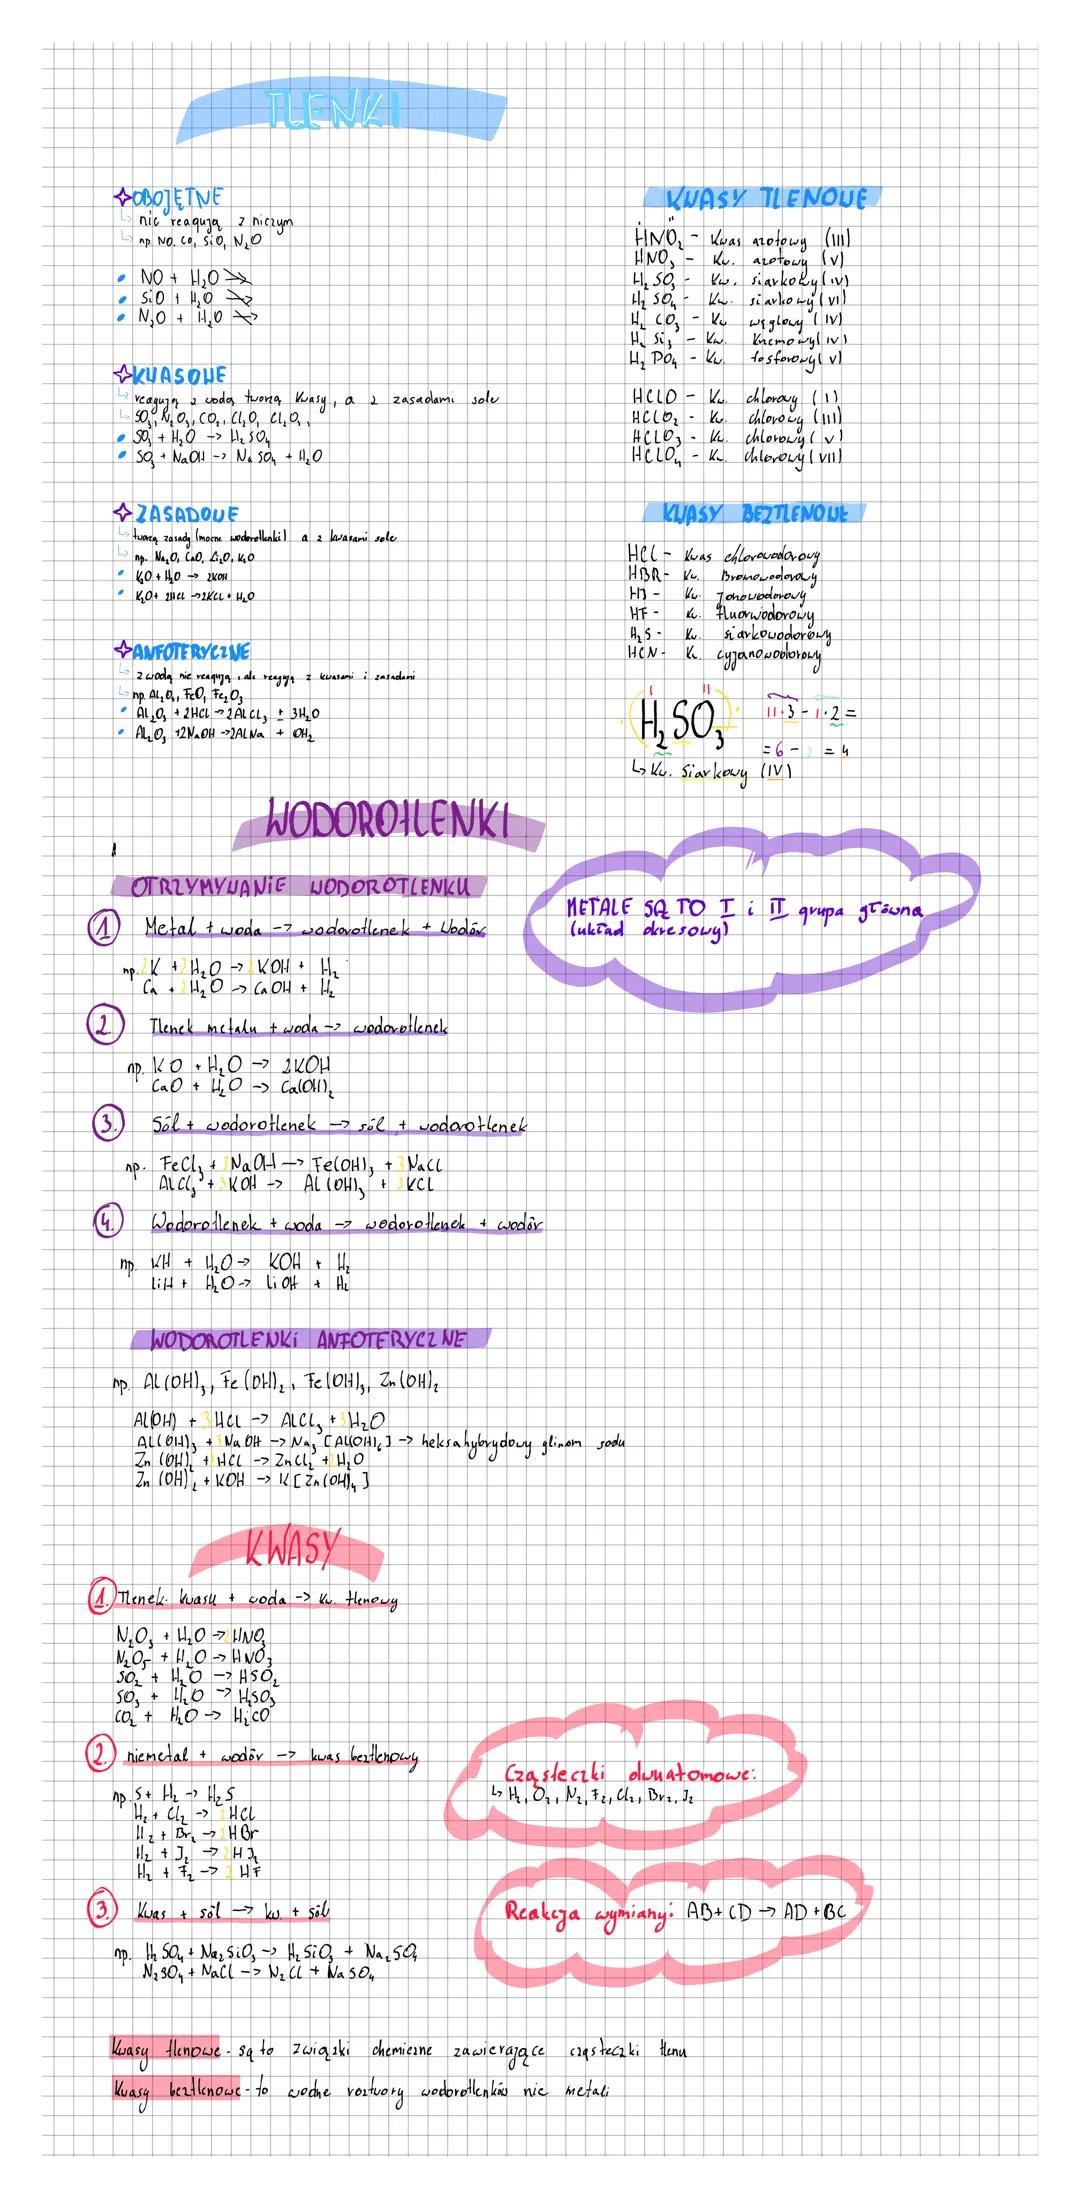 TLENKI
OBOJĘTNE
nic reagują z niczym
np. NO, CO, SiO, N₂O
NO + H₂O
SiO + H₂O
N₂O + H₂O
KWASOWE
reagują z wodą tworzą kwasy, a z zasadami sole
SO₃, N₂O₃, CO₂, Cl₂O, Cl₂O₃
SO₃ + H₂O -> H₂SO₄
SO₃ + NaOH -> Na SO₄ + H₂O
ZASADOWE
tworzą zasady (mocne wodorotlenki) a z kwasami sole
np. Na₂O, CaO, Li₂O, K₂O
K₂O + H₂O -> 2KOH
K₂O + 2HCL -> 2KCL + H₂O
ANFOTERYCZNE
z wodą nie reagują, ale reagują z kwasami i zasadami
np. AL₂O₃, FeO, Fe₂O₃
AL₂O₃ + 2HCL -> 2ALCL₃ + 3H₂O
AL₂O₃ + 2NaOH -> 2ALNa + OH₂
KWASY TLENOWE
HNO₂ - Kwas azotowy (III)
HNO₃ - Kw. azotowy (V)
H₂SO₃ - Kw. siarkowy (IV)
H₂SO₄ - Kw. siarkowy (VI)
H₂CO₃ - Kw węglowy (IV)
H₂Si₃ - Kw. krzemowy (IV)
H₂PO₄ - Kw. fosforowy (V)
HCLO - Kw. chlorowy (I)
HCLO₂ - Kw. chlorowy (III)
HCLO₃ - Kw. chlorowy (V)
HCLO₄ - Kw. chlorowy (VII)
KWASY BEZTLENOWE
HCL - Kwas chlorowodorowy
HBR - Kw. Bromowodorowy
HJ - Kw. Jonowodorowy
HF - Kw. fluorwodorowy
H₂S - Kw. siarkowodorowy
HCN - K. cyjanowodorowy
I II
H₂SO₃ II·3 - 1·2 =
= 6 - 2 = 4
Kw. Siarkowy (IV)
WODOROTLENKI
OTRZYMYWANiE WODOROTLENKU
METALE SĄ TO I i II grupa główna
(układ okresowy)
1 Metal + woda -> wodorotlenek + Wodór
np. 2K + 2H₂O -> 2KOH + H₂
Ca + 2H₂O -> CaOH + H₂
2. Tlenek metalu + woda -> wodorotlenek
np. KO + H₂O -> 2KOH
CaO + H₂O -> Ca(OH)₂
3. Sól + wodorotlenek -> sól + wodorotlenek
np. FeCl₃ + 3NaOH -> Fe(OH)₃ + 3NaCl
ALCl₃ + 3KOH -> AL(OH)₃ + 3KCL
4. Wodorotlenek + woda -> wodorotlenek + wodór
np. KH + H₂O -> KOH + H₂
LiH + H₂O -> LiOH + H₂
WODOROTLENKi ANFOTERYCZNE
np. AL(OH)₃, Fe(OH)₂, Fe(OH)₃, Zn(OH)₂
AL(OH) + 3HCL -> ALCL₃ + 3H₂O
AL(OH)₃ + 3NaOH -> Na₃[AL(OH)₆] -> heksahybrydowy glinom sodu
Zn(OH)₂ + 2HCL -> ZnCl₂ + 2H₂O
Zn(OH)₂ + KOH -> K[Zn(OH)₄]
KWASY
1. Tlenek kwasu + woda -> kw. tlenowy
N₂O₃ + H₂O -> 2HNO₃
N₂O₅ + H₂O -> HNO₃
SO₂ + H₂O -> HSO₂
SO₃ + H₂O -> H₂SO₃
CO₂ + H₂O -> H₂CO
2. niemetal + wodór -> kwas beztlenowy
np. S + H₂ -> H₂S
H₂ + Cl₂ -> 2HCl
H₂ + Br₂ -> 2HBr
H₂ + J₂ -> 2HJ₂
H₂ + F₂ -> 2HF
Cząsteczki dwuatomowe:
H₂, O₂, N₂, F₂, Cl₂, Br₂, J₂
3. Kwas + sól -> kw. + sól
np. H₂SO₄ + Na₂SiO₃ -> H₂SiO₃ + Na₂SO₄
N₂SO₄ + NaCl -> N₂Cl + NaSO₄
Reakcja wymiany: AB + CD -> AD + BC
Kwasy tlenowe - są to związki chemiczne zawierające cząsteczki tlenu
Kwasy beztlenowe - to wodne roztwory wodorotlenków nie metali